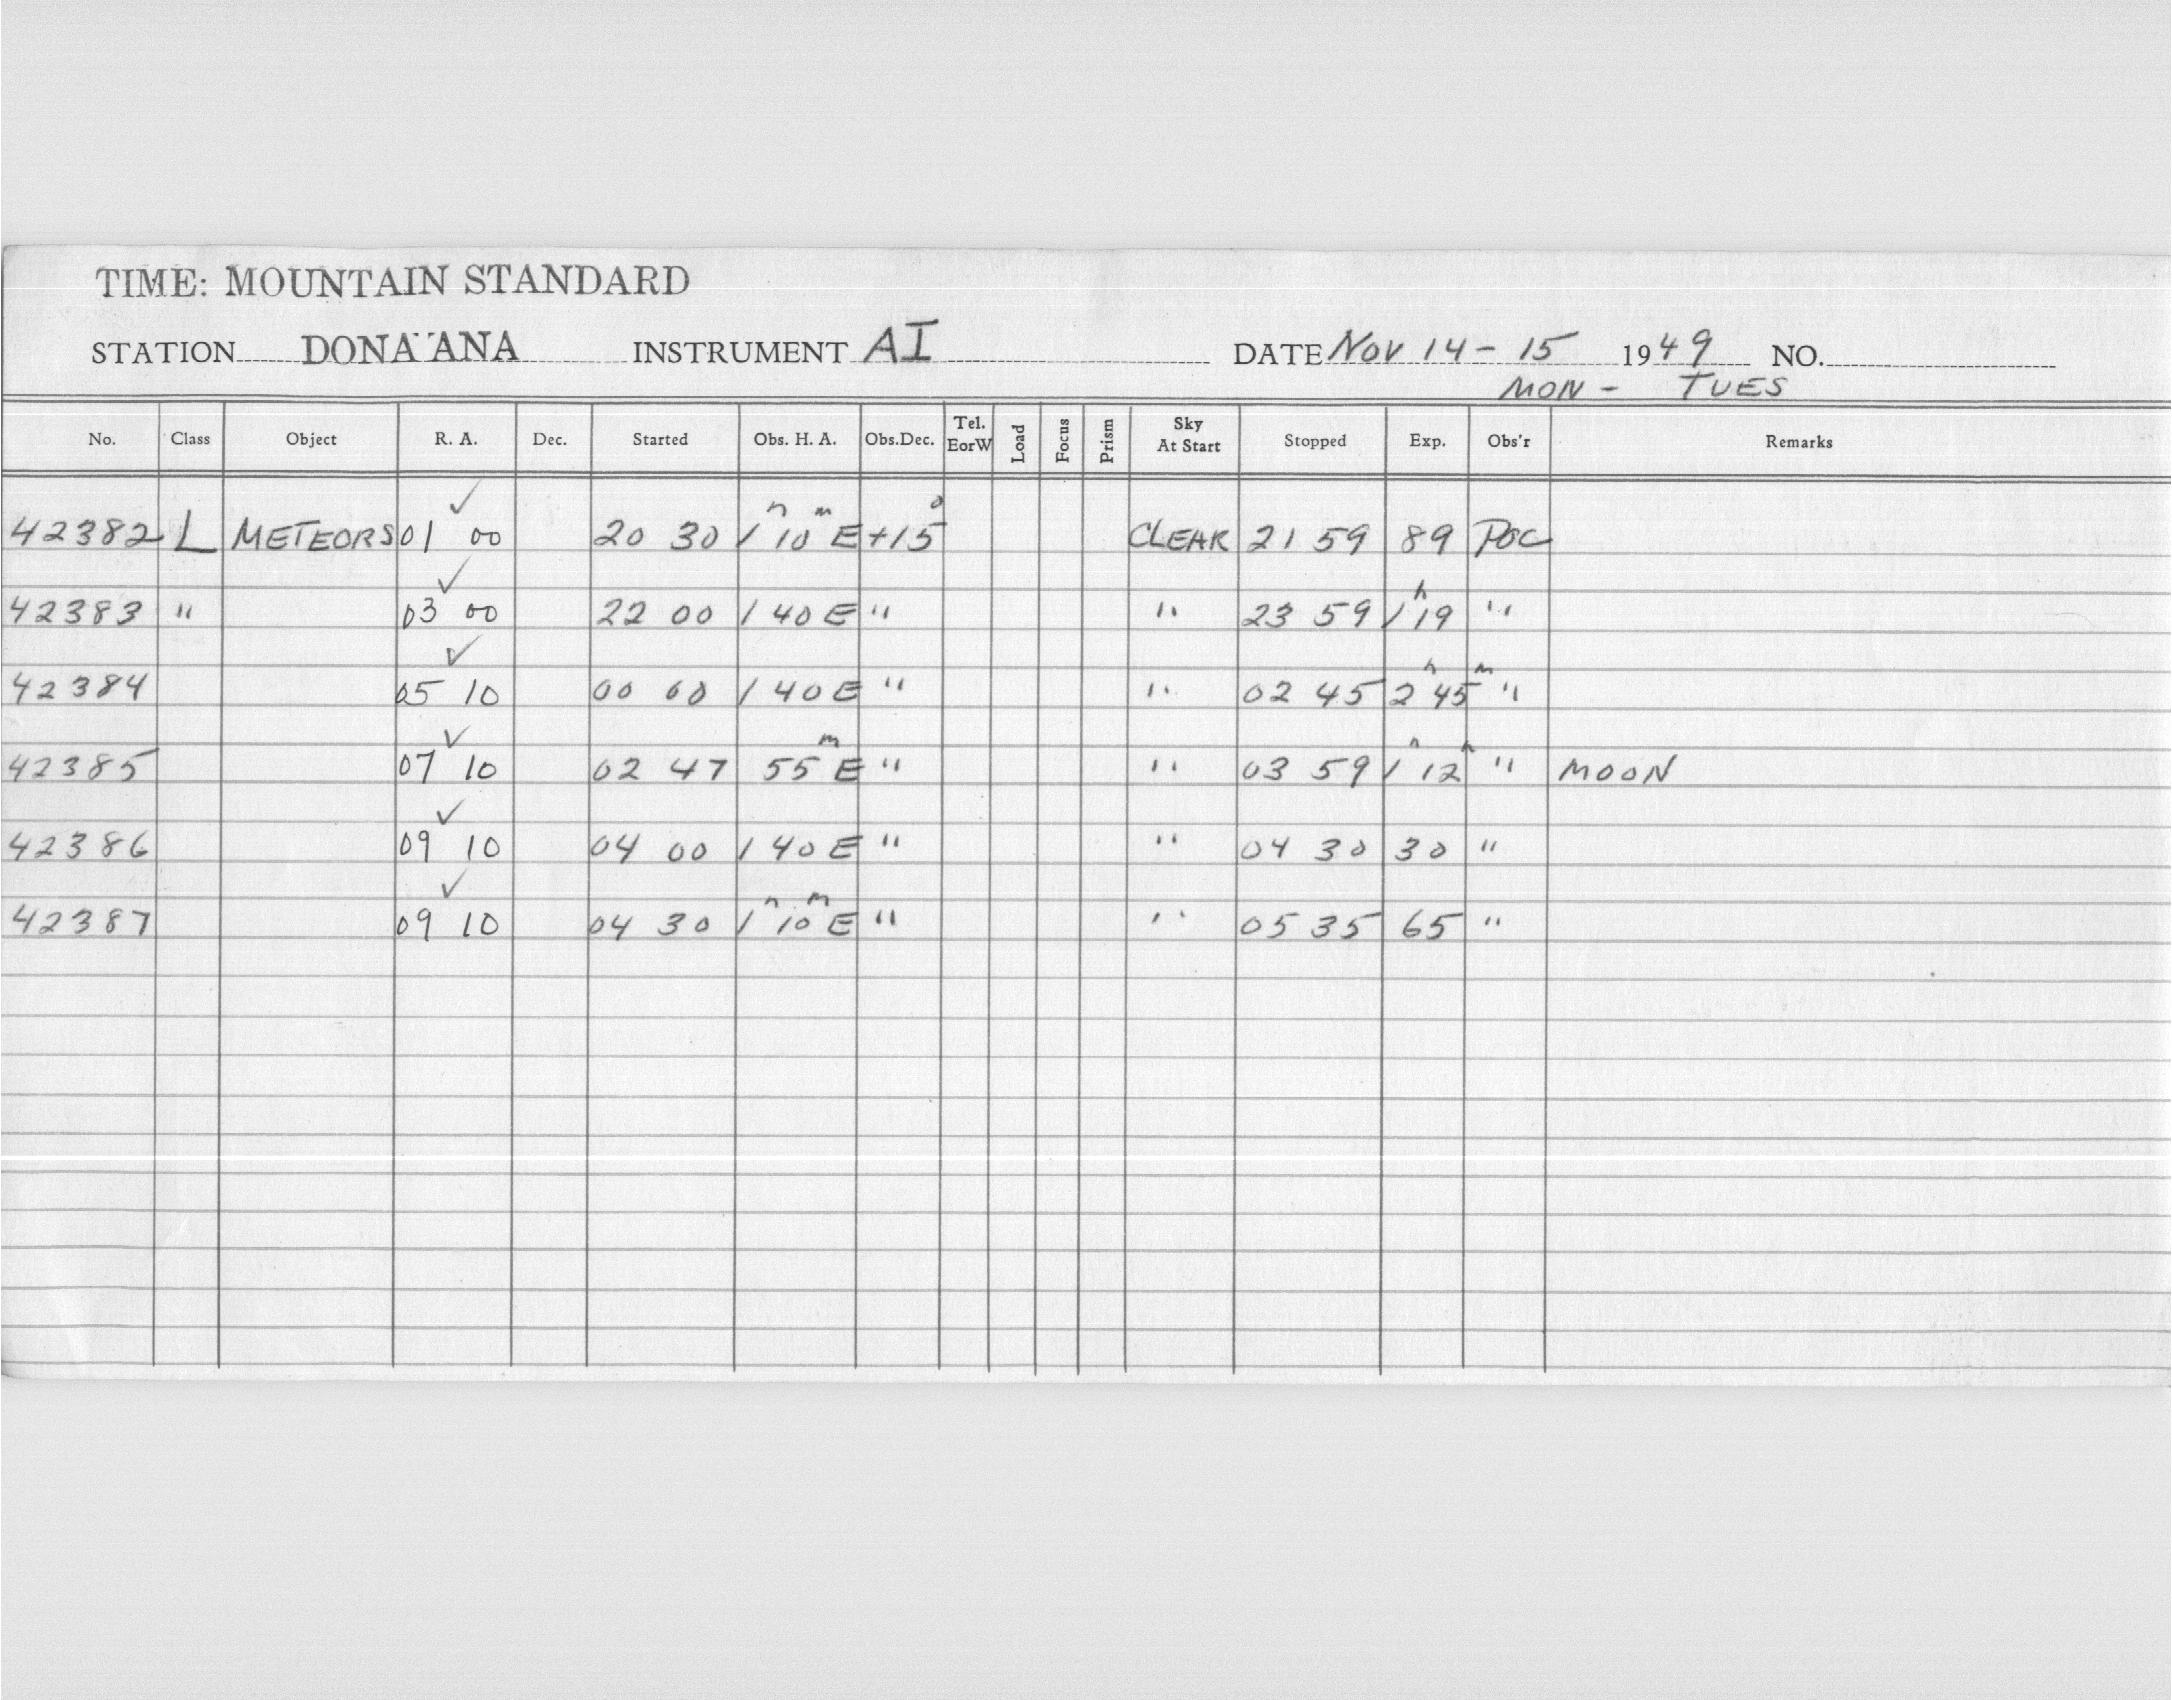 TIME: MOUNTAIN STANDARD
STATION DONA ANA INSTRUMENT AI DATE NOV 14 - 15 1949 NO.
MON - TUES
No. Class Object R. A. Dec. Started Obs. H. A. Obs.Dec. Tel. EorW Load Focus Prism Sky At Start Stopped Exp. Obs'r Remarks
42382 L METEORS 01 00 ✓ 20 30 1h 10m E +15° CLEAR 21 59 89 POC
42383 " 03 00 ✓ 22 00 1 40 E " " 23 59 1h 19 "
42384 05 10 ✓ 00 00 1 40 E " " 02 45 2h 45m "
42385 07 10 ✓ 02 47 55m E " " 03 59 1h 12m " MOON
42386 09 10 ✓ 04 00 1 40 E " " 04 30 30 "
42387 09 10 ✓ 04 30 1h 10m E " " 05 35 65 "